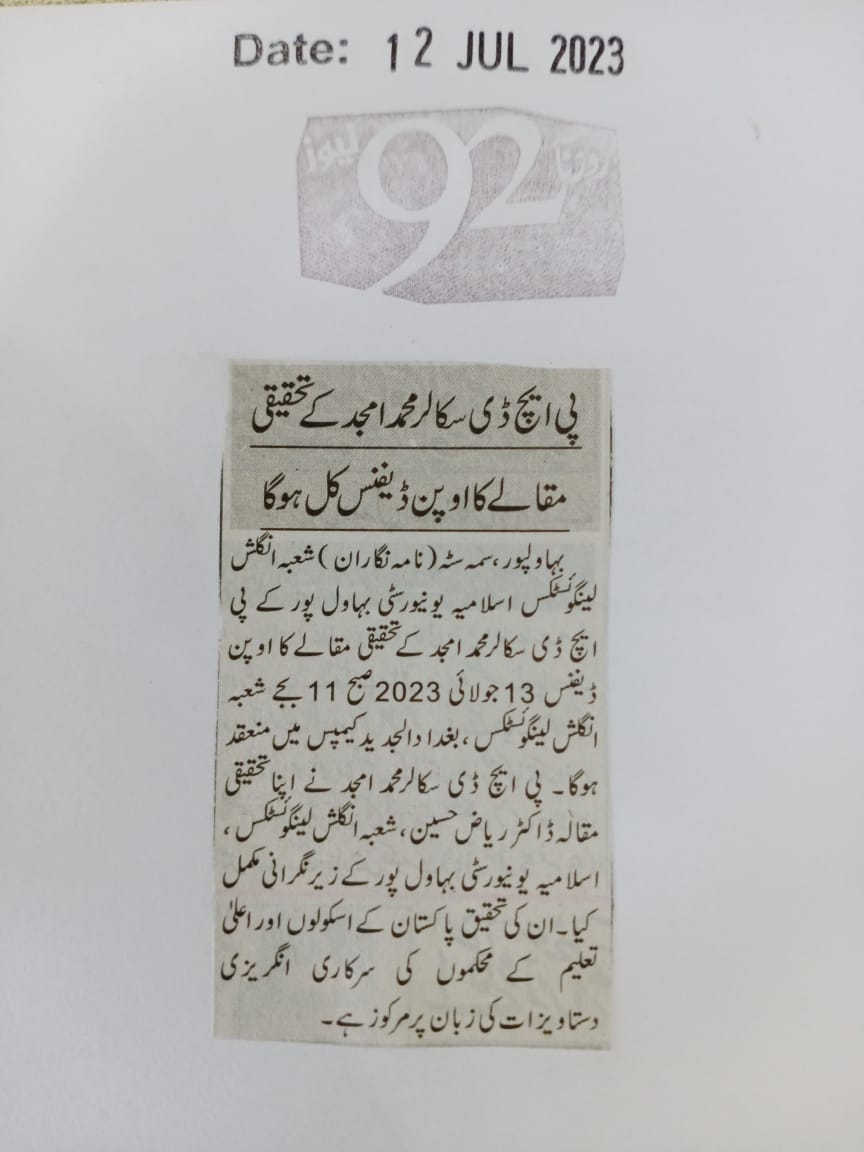 Date: 12 JUL 2023
روزنامہ 92 نیوز
پی ایچ ڈی سکالر محمد امجد کے تحقیقی
مقالے کا اوپن ڈیفنس کل ہوگا
بہاولپور، سمہ سٹہ (نامہ نگاران) شعبہ انگلش
لینگوئسٹکس اسلامیہ یونیورسٹی بہاول پور کے پی
ایچ ڈی سکالر محمد امجد کے تحقیقی مقالے کا اوپن
ڈیفنس 13 جولائی 2023 صبح 11 بجے شعبہ
انگلش لینگوئسٹکس، بغداد الجدید کیمپس میں منعقد
ہوگا۔ پی ایچ ڈی سکالر محمد امجد نے اپنا تحقیقی
مقالہ ڈاکٹر ریاض حسین، شعبہ انگلش لینگوئسٹکس،
اسلامیہ یونیورسٹی بہاول پور کے زیر نگرانی مکمل
کیا۔ ان کی تحقیق پاکستان کے اسکولوں اور اعلیٰ
تعلیم کے محکموں کی سرکاری انگریزی
دستاویزات کی زبان پر مرکوز ہے۔